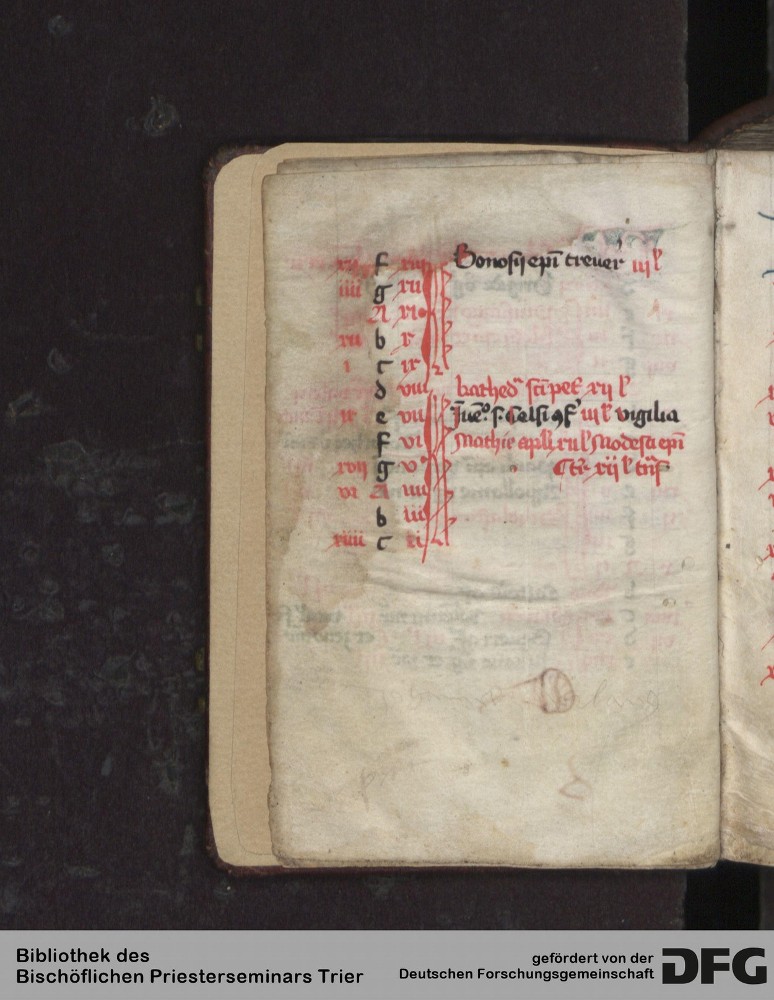 xv f xiii Bonosij epi trever iij l
iiii g xii
A xi
xii b x
i c ix
d viii kathed sci pet xij l
ix e vii Jue s. Celsi 9f iii l vigilia
f vi Mathie apli xii l Modesti epi
xvij g v xij l
vi A iiii
b iii
xiiii c ii
Bibliothek des
Bischöflichen Priesterseminars Trier
gefördert von der
Deutschen Forschungsgemeinschaft
DFG